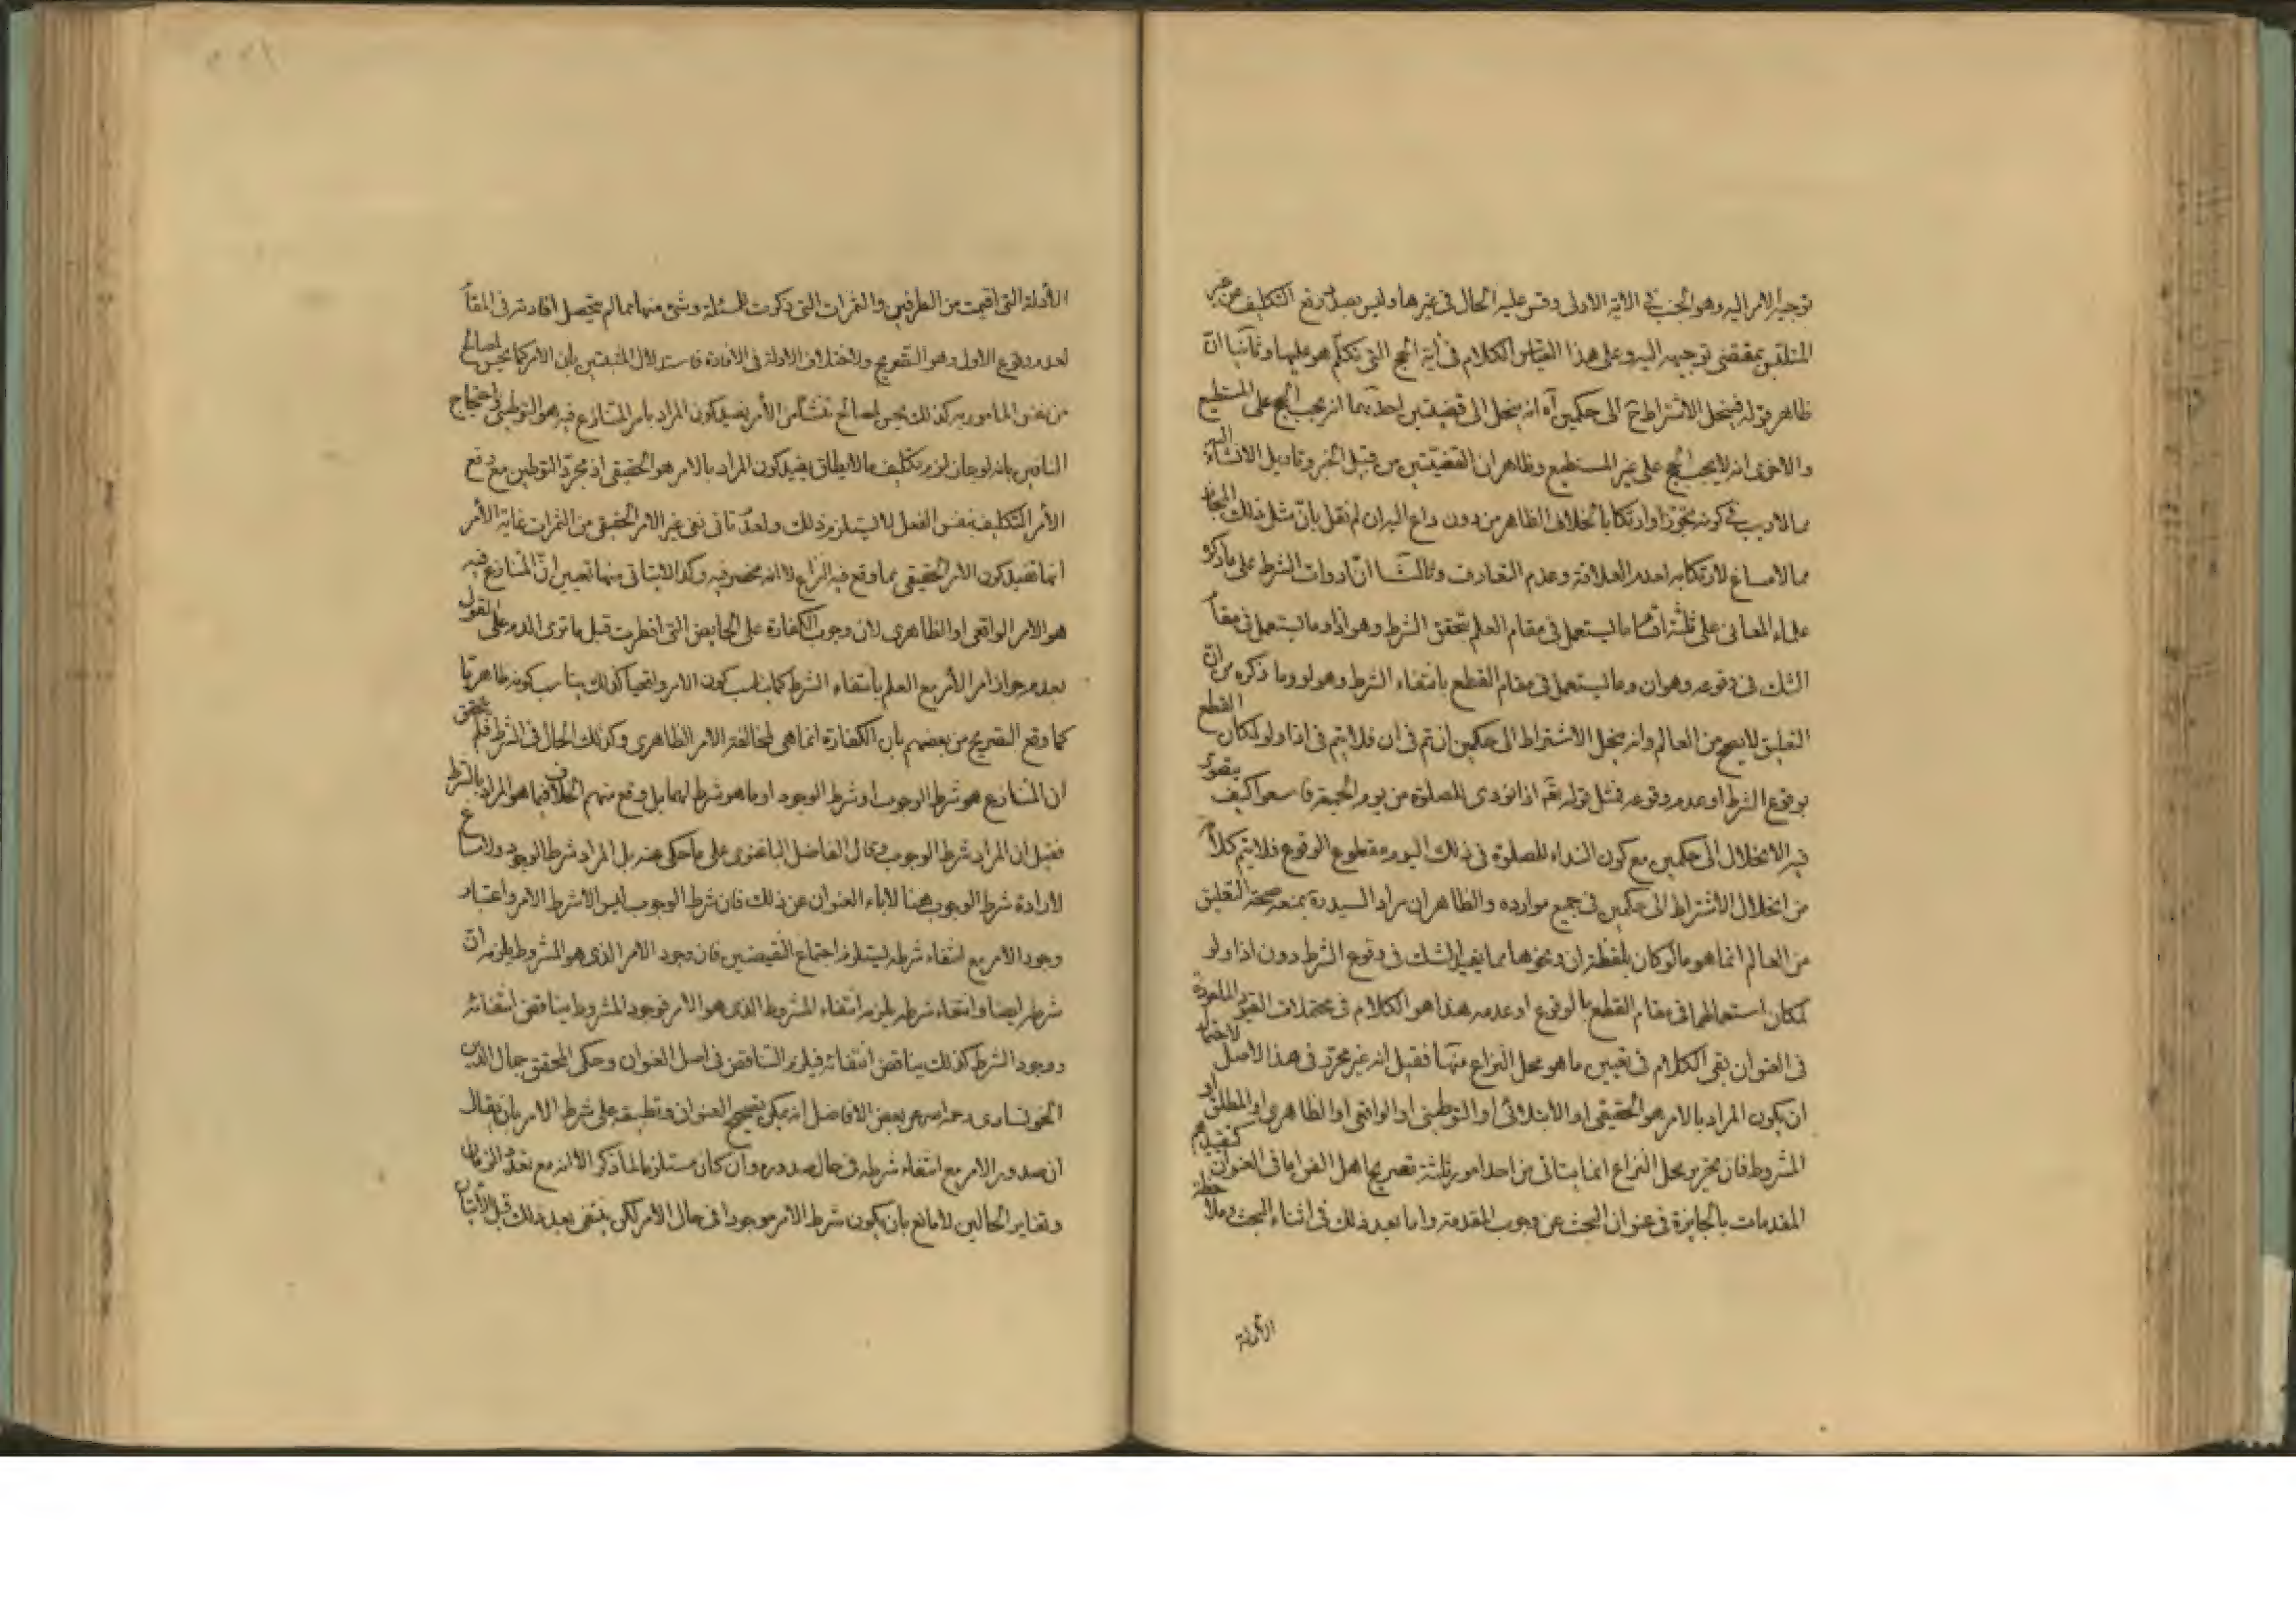 توجيه الامر اليه وهو الجنب في الاية الاولى وقس عليه الحال في غيرها وليس بصدد رفع التكليف عن غير
المتلبس بمقتضى توجيهه اليه وعلى هذا القياس الكلام في اية الحج التي تكلم هو عليها وثانيا ان
ظاهر قوله فينحل الاشتراط ح الى حكمين اه انه ينحل الى قضيتين احديهما انه يجب الحج على المستطيع
والاخرى انه لا يجب الحج على غير المستطيع وظاهر ان القضيتين من قبيل الخبر وتاويل الانشاء اليه
مما لا ريب في كونه تجوزا وارتكابا لخلاف الظاهر من دون داع اليه ان لم نقل بان مثل ذلك المجاز
مما لا مساغ لارتكابه لعدم العلاقة وعدم التعارف وثالثا ان ادوات الشرط على ما ذكره
علماء المعاني على ثلثة اقسام ما يستعمل في مقام العلم بتحقق الشرط وهو اذا وما يستعمل في مقام
الشك في وقوعه وهو ان وما يستعمل في مقام القطع بانتفاء الشرط وهو لو وما ذكره من ان
التعليق لا يصح من العالم وانه ينحل الاشتراط الى حكمين ان تم في ان فلا يتم في اذا ولو لمكان القطع
بوقوع الشرط او عدم وقوعه فمثل قوله تعم اذا نودى للصلوة من يوم الجمعة فاسعوا كيف يتصور
فيه الانحلال الى حكمين مع كون النداء للصلوة في ذلك اليوم مقطوع الوقوع فلا يتم كلامه
من انحلال الاشتراط الى حكمين في جميع موارده والظاهر ان مراد السيد ره بمنعه صحة التعليق
من العالم انما هو ما لو كان بلفظة ان ونحوها مما يفيد الشك في وقوع الشرط دون اذا ولو
لمكان استعمالهما في مقام القطع بالوقوع او عدمه هذا هو الكلام في محتملات القيود الماخوذة
في العنوان بقى الكلام في تعيين ما هو محل النزاع منها فقيل انه غير محرر في هذا الاصل لاحتمال
ان يكون المراد بالامر هو الحقيقي او الابتلائي او التوطيني او الواقعي او الظاهري او المطلق او
المشروط فان تحرير محل النزاع انما يتاتى من احد امور ثلثة تصريح اهل الفن اما في العنوان كتقييدهم
المقدمات بالجايزة في عنوان البحث عن وجوب المقدمة واما بعد ذلك في اثناء البحث وملاحظة
الأدلة
الأدلة التي اقيمت من الطرفين والثمرات التي ذكرت للمسئلة وشئ منها مما لم يتحصل افادته في المقام
لعدم وقوع الاول وهو التصريح ولاختلاف الادلة في الافادة فاستدلال المثبتين بان الامر كما يحسن لمصالح
من نفس المامور به كذلك يحسن لمصالح تنشأ من الأمر يفيد كون المراد بالامر المتنازع فيه هو التوطيني واحتجاج
النافين بانه لو جاز لزم تكليف ما لا يطاق يفيد كون المراد بالامر هو الحقيقي اذ مجرد التوطين مع رفع
الأمر التكليف بنفس الفعل لا يستلزم ذلك ولعدم تاتي نفي غير الامر الحقيقي من الثمرات غاية الأمر
انما تفيد كون الامر الحقيقي مما وقع فيه النزاع لا انه محصور فيه وكذا لا يتاتى منها تعيين ان المتنازع فيه
هو الامر الواقعي او الظاهري لان وجوب الكفارة على الحايض التي افطرت قبل ما ترى الدم على القول
بعدم جواز امر الأمر مع العلم بانتفاء الشرط كما يناسب كون الامر واقعيا كذلك يناسب كونه ظاهريا
كما وقع التصريح من بعضهم بان الكفارة انما هي لمخالفة الامر الظاهري وكذلك الحال في الشرط فلم يتحقق
ان المتنازع هو شرط الوجوب او شرط الوجود او ما هو شرط لهما بل وقع منهم الخلاف فيما هو المراد بالشرط
فقيل ان المراد شرط الوجوب وقال الفاضل الباغنوي على ما حكى عنه بل المراد شرط الوجود ولا مساغ
لارادة شرط الوجوب هنا لاباء العنوان عن ذلك فان شرط الوجوب ليس الا شرط الامر واعتبار
وجود الامر مع انتفاء شرطه يستلزم اجتماع النقيضين فان وجود الامر الذي هو المشروط يلزمه ان
شرطه ايضا وانتفاء شرطه يلزمه انتفاء المشروط الذي هو الامر فوجود المشروط يناقض انتفائه
ووجود الشرط كذلك يناقض انتفائه فيلزم التناقض في اصل العنوان وحكى المحقق جمال الدين
الخونساري رحمه الله عن بعض الافاضل انه يمكن تصحيح العنوان وتطبيقه على شرط الامر بان يقال
ان صدور الامر مع انتفاء شرطه في حال صدوره وان كان مستلزما لما ذكر الا انه مع تعدد الزمان
وتغاير الحالين لا مانع بان يكون شرط الامر موجودا في حال الامر لكن ينتفى بعد ذلك قبل الاتيان